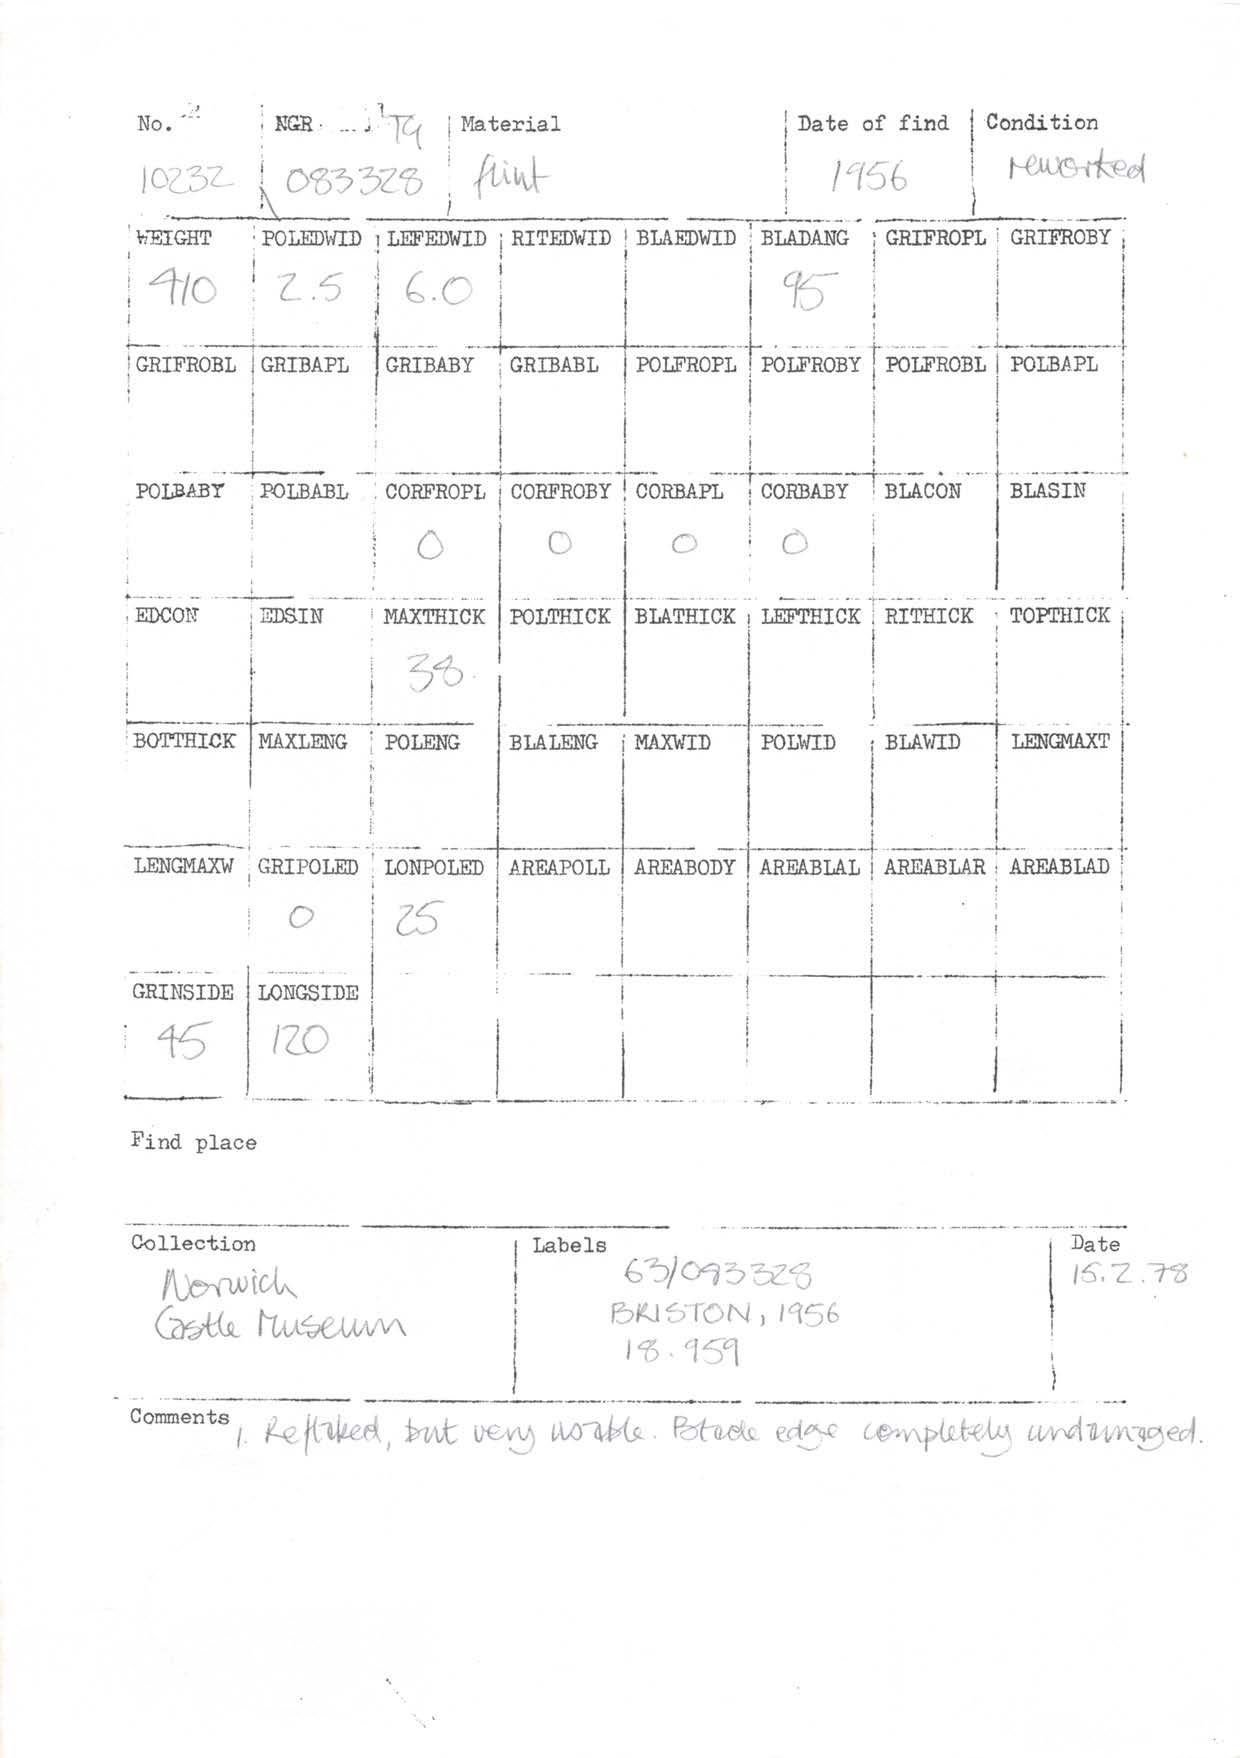 No. NGR TG Material Date of find Condition
10232 083328 flint 1956 reworked
WEIGHT POLEDWID LEFEDWID RITEDWID BLAEDWID BLADANG GRIFROPL GRIFROBY
410 2.5 6.0 95
GRIFROBL GRIBAPL GRIBABY GRIBABL POLFROPL POLFROBY POLFROBL POLBAPL
POLBABY POLBABL CORFROPL CORFROBY CORBAPL CORBABY BLACON BLASIN
0 0 0 0
EDCON EDSIN MAXTHICK POLTHICK BLATHICK LEFTHICK RITHICK TOPTHICK
38
BOTTHICK MAXLENG POLENG BLALENG MAXWID POLWID BLAWID LENGMAXT
LENGMAXW GRIPOLED LONPOLED AREAPOLL AREABODY AREABLAL AREABLAR AREABLAD
0 25
GRINSIDE LONGSIDE
45 120
Find place
Collection Labels Date
Norwich 63/083328 15.2.78
Castle Museum BRISTON, 1956
18.959
Comments 1. Reflaked, but very usable. Blade edge completely undamaged.